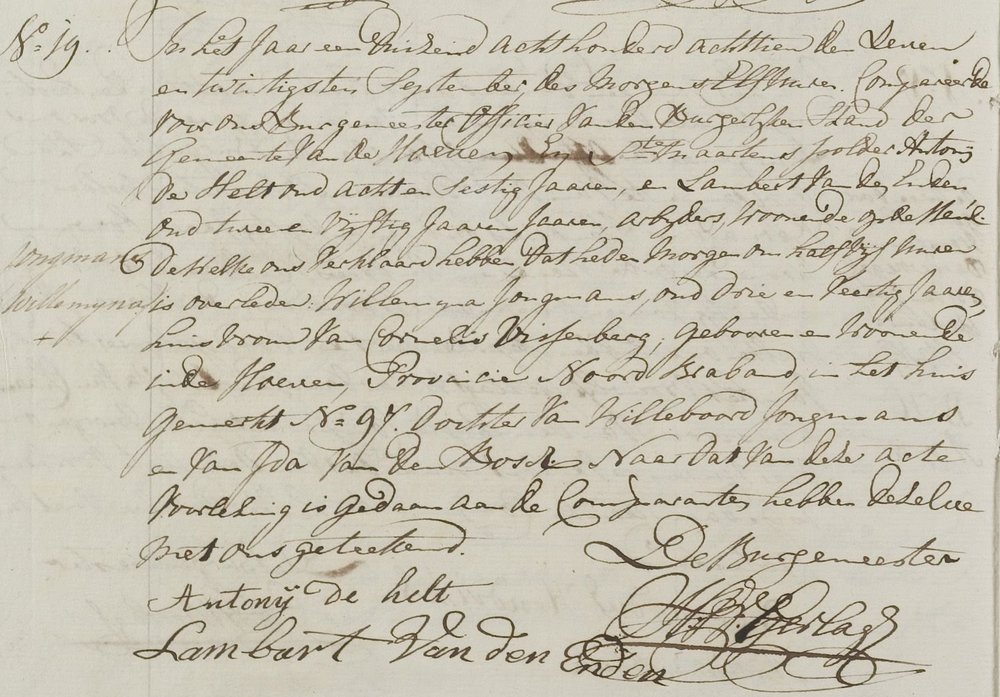 No. 19. In het Jaar een Duizend achthonderd achttien den Seven
en twintigsten September des Morgens Elf Uuren. Compareerde
voor ons Burgemeester Officier Van den Burgerlyken Stand der
Gemeente Van de Hoeven, En Ste Maartens polder Antony
de Helt oud acht en Sestig Jaaren, en Lambert Van den Enden
oud twee en Vyftig Jaaren Jaaren, arbyders, Woonende op de
De Welke ons Verklaard hebben Dat heden Morgen om half Vyf Uuren
is overleden Willemyna Jongmans, oud Drie en Veertig Jaaren,
huisvrouw Van Cornelis Vissenberg, gebooren en Woonende
in de Hoeven, Provincie Noord Braband, in het huis
gemerkt No. 97. Dochter Van Willeboord Jongmans
en Van Ida Van den Bosch Naar Dat Van deze acte
Voorlezing is gedaan aan de Comparanten hebben dezelve
met ons geteekend.
Jongmans
Willemyna
+
De Burgemeester
Antonij de helt
Lambart Van den Enden